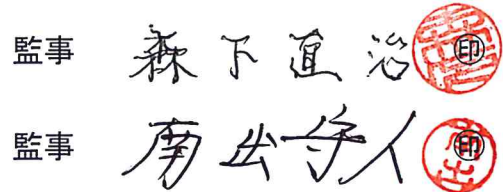 監事 森下直治 ㊞
監事 南出守人 ㊞